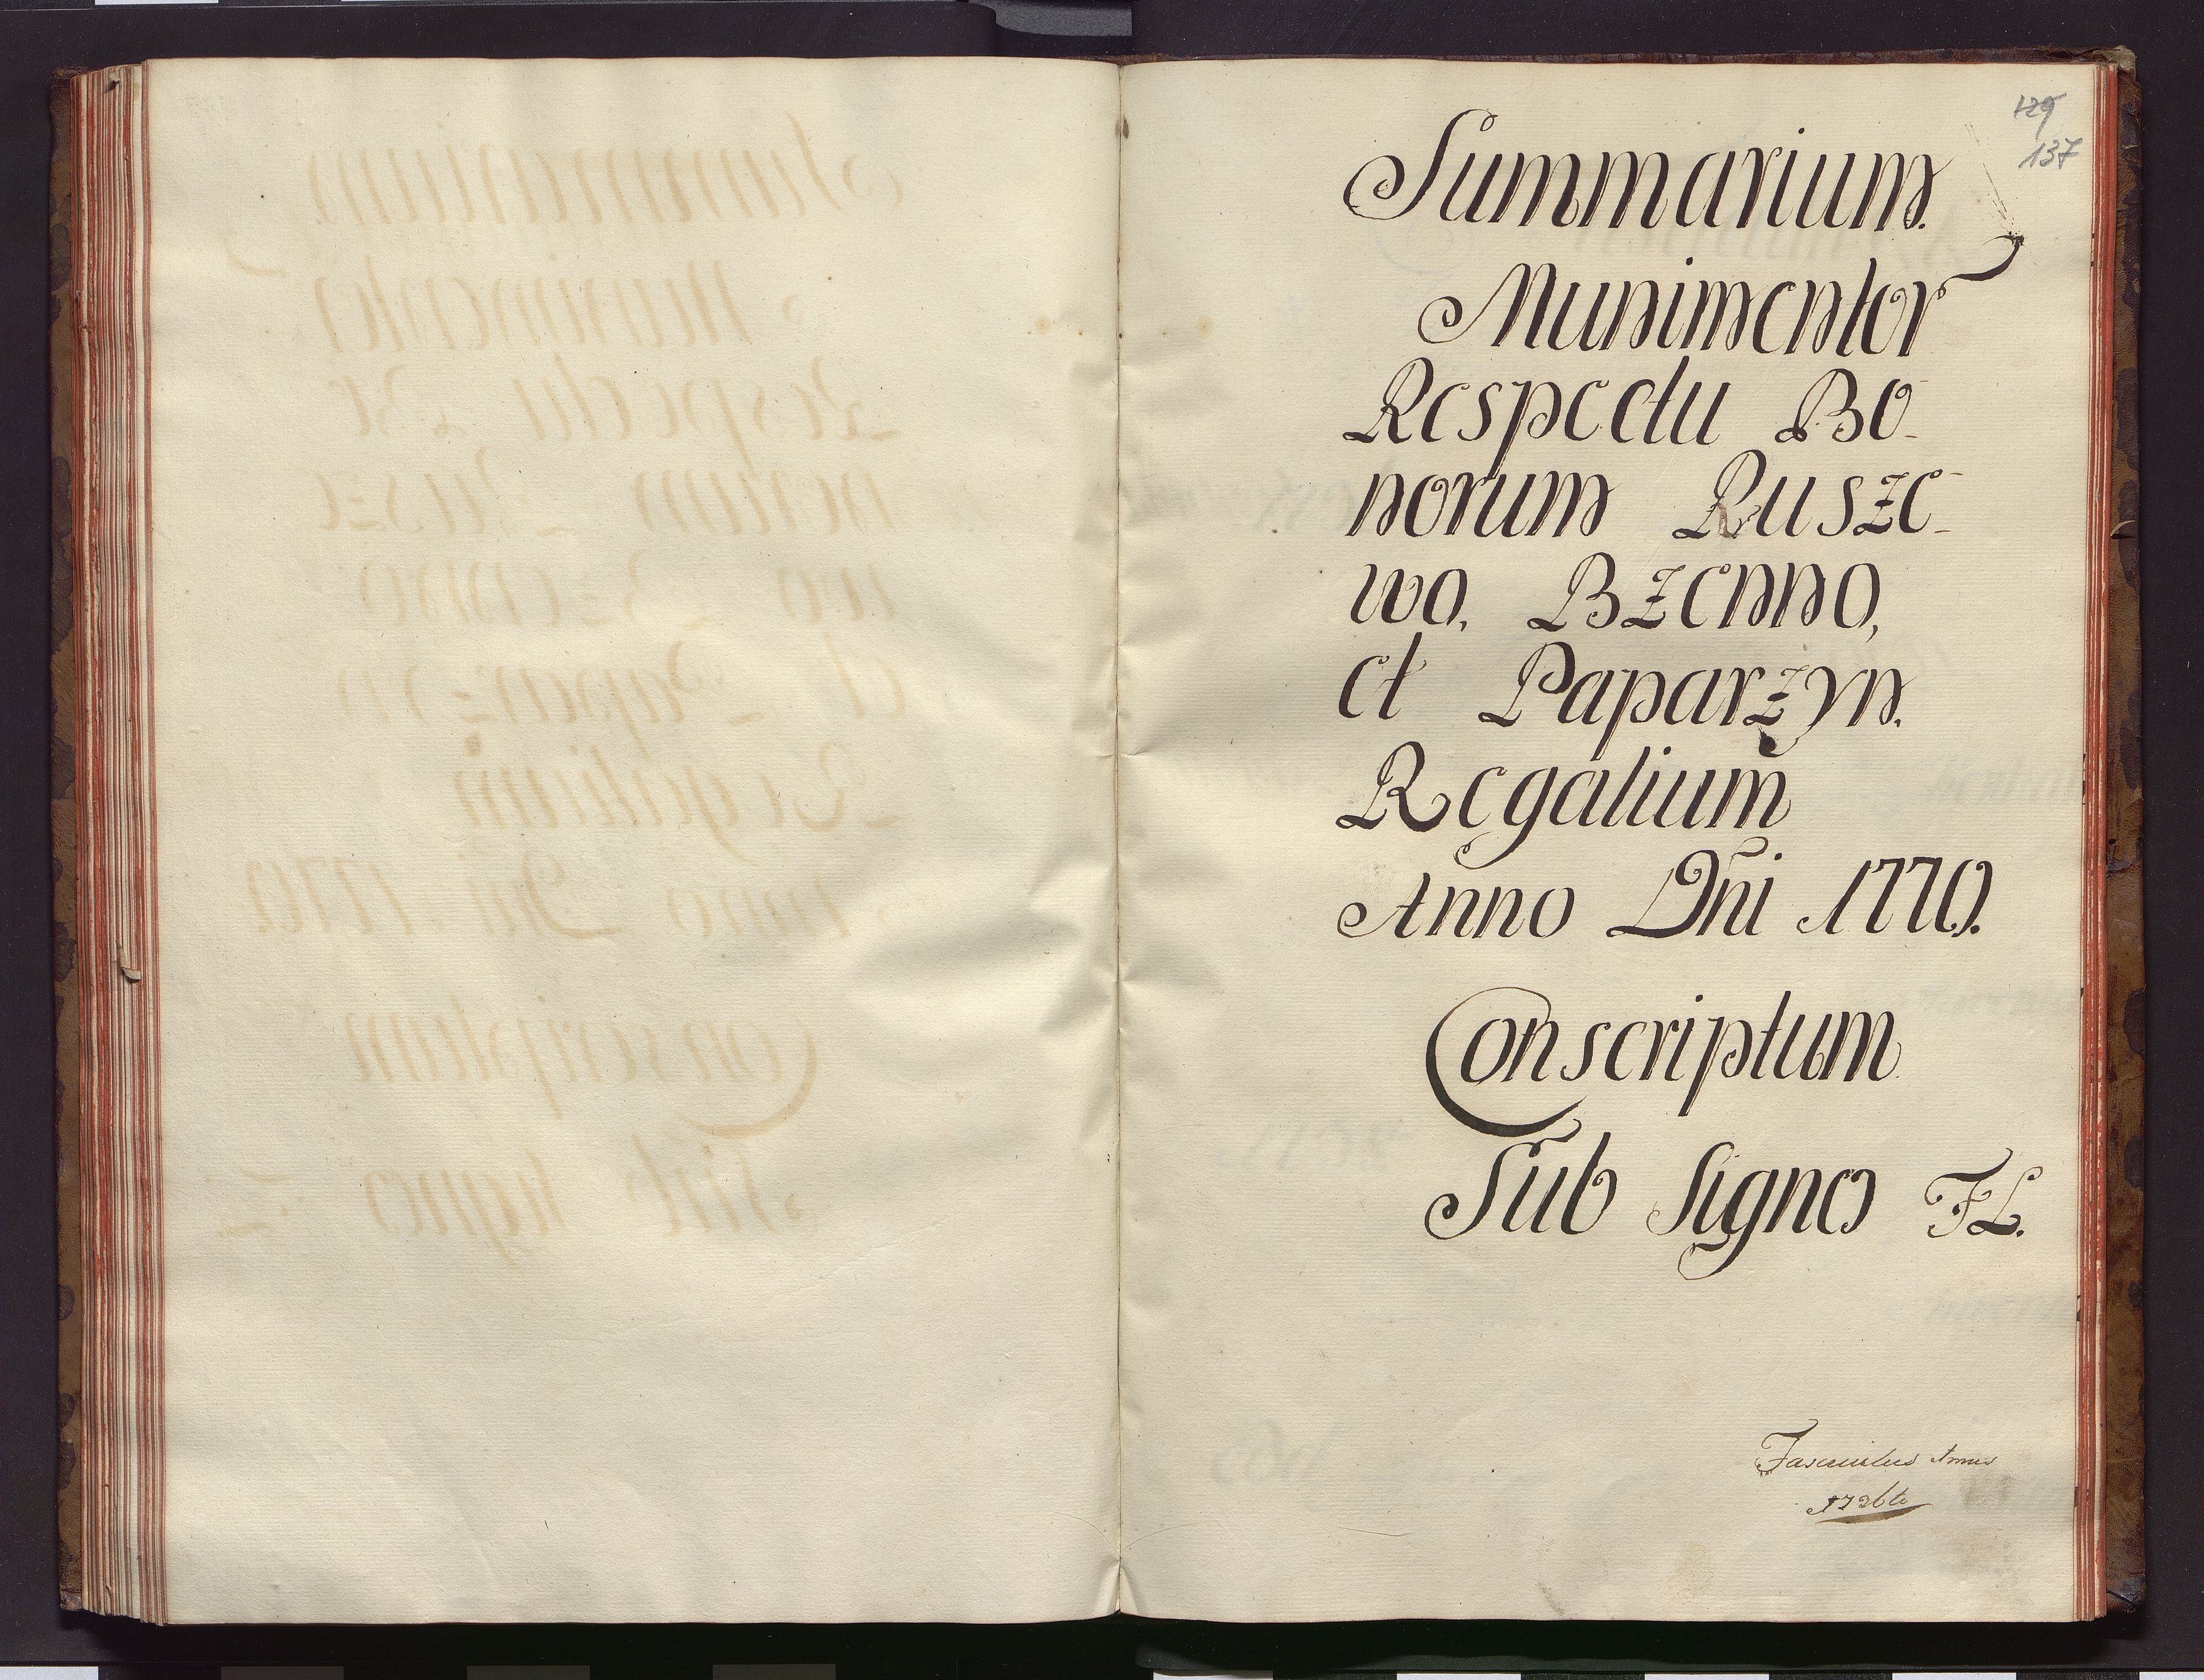 129
137
Summarium.
Munimentor
Respectu Bo-
norum Rusze-
wo, Bzenno,
et Paparzyn.
Regalium
Anno Dni 1770.
Conscriptum
Sub Signo FL.
Fasciculus